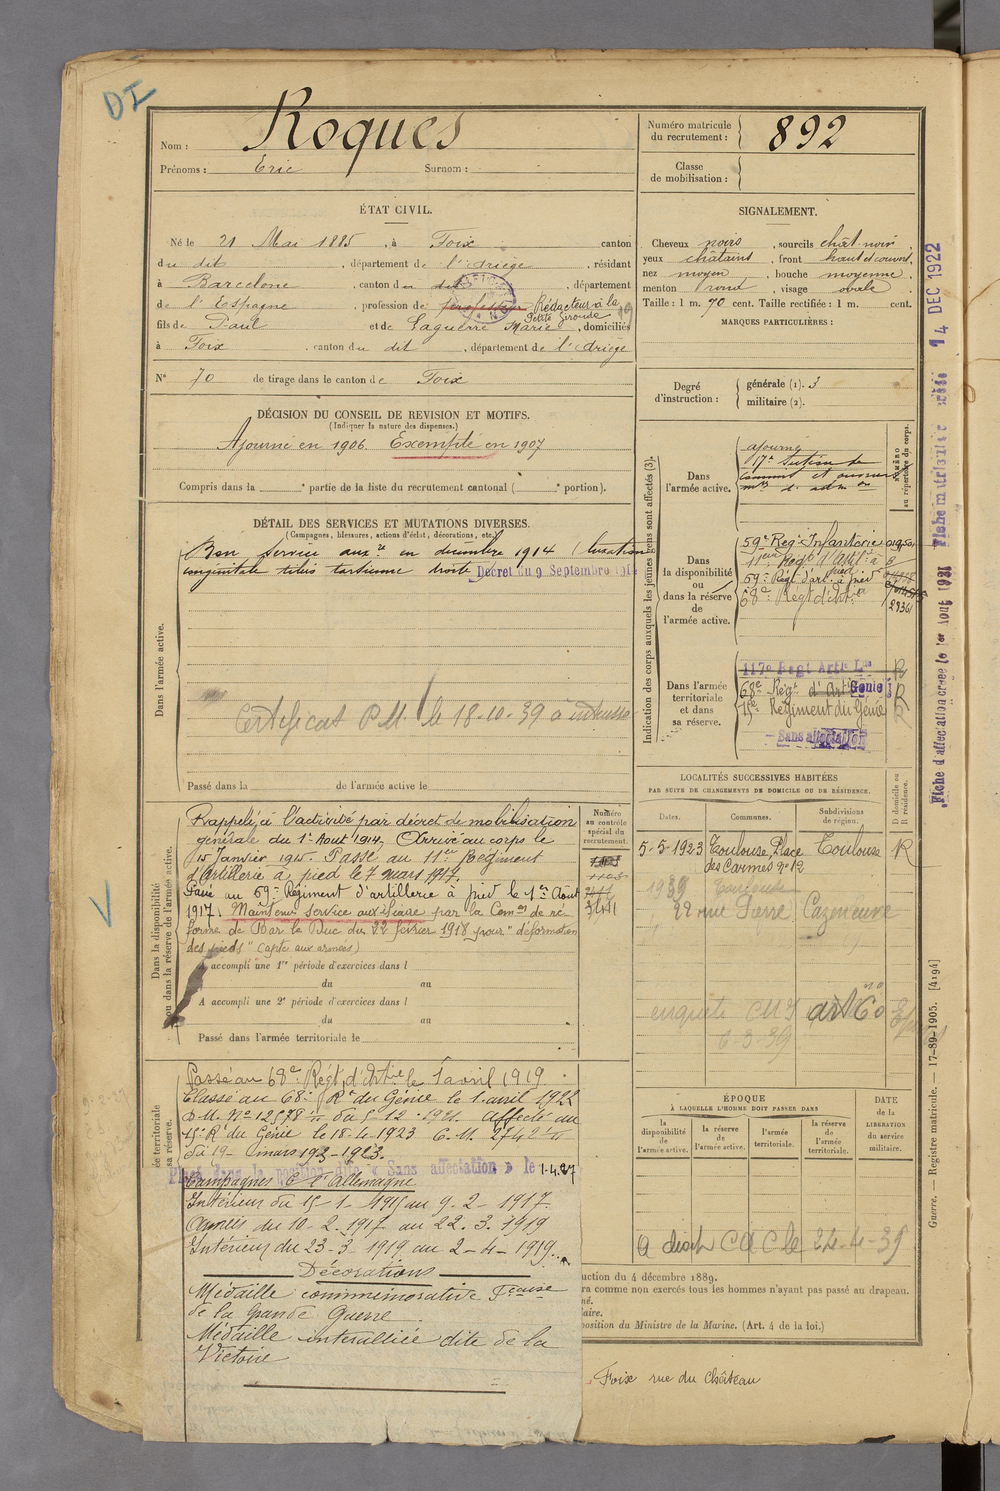 DI
Nom : Roques
Prénoms : Eric Surnom :
Numéro matricule du recrutement : 892
Classe de mobilisation :
ÉTAT CIVIL.
Né le 21 Mai 1885, à Foix canton
du dit, département de l'Ariège, résidant
à Barcelone, canton du dit, département
de l'Espagne, profession de professeur Rédacteur à la Petite Gironde
fils de Paul et de Laguerre Marie, domiciliés
à Foix, canton du dit, département de l'Ariège
N° 70 de tirage dans le canton de Foix
SIGNALEMENT.
Cheveux noirs, sourcils chât. noir,
yeux châtains, front haut et couvert,
nez moyen, bouche moyenne,
menton rond, visage ovale
Taille : 1 m. 70 cent. Taille rectifiée : 1 m. cent.
MARQUES PARTICULIÈRES :
DÉCISION DU CONSEIL DE REVISION ET MOTIFS.
(Indiquer la nature des dispenses.)
Ajourné en 1906. Exempté en 1907
Compris dans la e partie de la liste du recrutement cantonal ( e portion).
Degré d'instruction :
générale (1). 3
militaire (2).
DÉTAIL DES SERVICES ET MUTATIONS DIVERSES.
(Campagnes, blessures, actions d'éclat, décorations, etc.)
Dans l'armée active.
Bon service auxre en décembre 1914 (luxation
congénitale tibio tarsienne droite Décret du 9 Septembre 1914
Certificat P.M. le 18-10-39 à
Passé dans la de l'armée active le
Indication des corps auxquels les jeunes gens sont affectés (3).
NUMÉRO au répertoire du corps.
Dans l'armée active.
ajourné
17e Section de
commis et ouvriers
mres d'admon
Dans la disponibilité ou dans la réserve de l'armée active.
59e Reg. Infanterie
11ème Régt d'Artie à pied
59e Régt d'art. à pied
68e Régt d'Artie
29361
Dans l'armée territoriale et dans sa réserve.
117e Regt Artie Lde R
68e Régt d'Art Génie R
15e Régiment du Génie R
Sans affectation
Dans la disponibilité ou dans la réserve de l'armée active.
Numéro au contrôle spécial du recrutement.
Rappelé à l'activité par décret de mobilisation
générale du 1er Aout 1914. Arrivé au corps le
15 Janvier 1915. Passé au 11e Régiment
d'Artillerie à pied le 7 mars 1917.
Passé au 59e Régiment d'artillerie à pied le 1er Août
1917. Maintenu service auxiliaire par la Comon de ré-
forme de Bar le Duc du 22 février 1918 pour "déformation
des pieds" (apte aux armées)
A accompli une 1re période d'exercices dans l
du au
A accompli une 2e période d'exercices dans l
du au
Passé dans l'armée territoriale le
LOCALITÉS SUCCESSIVES HABITÉES
PAR SUITE DE CHANGEMENTS DE DOMICILE OU DE RÉSIDENCE.
Dates. Communes. Subdivisions de région. D domicile ou R résidence.
5-5-1923 Toulouse, Place des Carmes n° 12 Toulouse R
1939 Toulouse
22 rue Pierre Cazeneuve
6-3-39
ée territoriale
sa réserve.
Passé au 68e Régt d'Artie le 1 avril 1919
Classé au 68e Rt du Génie le 1 avril 1922
D.M. N° 12578 du 5-12-1921. Affecté au
15e Rt du Génie le 18-4-1923 C.M. 2742
du 19 mars 1923
Placé dans la position dite « Sans affectation » le 1-4-27
Campagnes C. l'Allemagne
Intérieur du 15-1-1915 au 9-2-1917.
Armées du 10-2-1917 au 22-3-1919
Intérieur du 23-3-1919 au 2-4-1919
Décorations
Médaille commémorative Fçaise
de la Grande Guerre
Médaille interalliée dite de la
Victoire
ÉPOQUE
À LAQUELLE L'HOMME DOIT PASSER DANS
la disponibilité de l'armée active.
la réserve de l'armée active.
l'armée territoriale.
la réserve de l'armée territoriale.
DATE de la LIBÉRATION du service militaire.
uction du 4 décembre 1889.
ra comme non exercés tous les hommes n'ayant pas passé au drapeau.
né.
laire.
position du Ministre de la Marine. (Art. 4 de la loi.)
Foix rue du Château
Fiche d'affectation créée le 1er Aout 1921
Fiche matriculaire créée 14 DEC 1922
Guerre. — Registre matricule. — 17-89-1905. [4194]